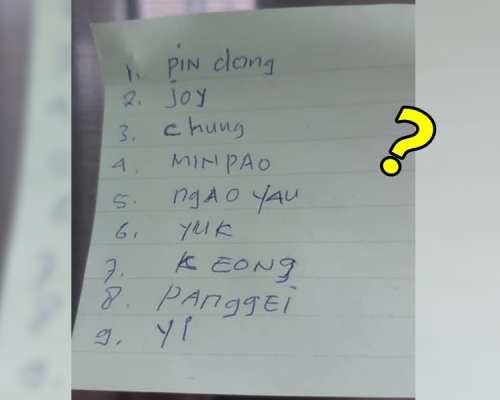 1. PIN dong
2. joy
3. chung
4. MINPAO
5. ngAO YAU
6. YUK
7. KEONg
8. PANggEI
9. Yi
?